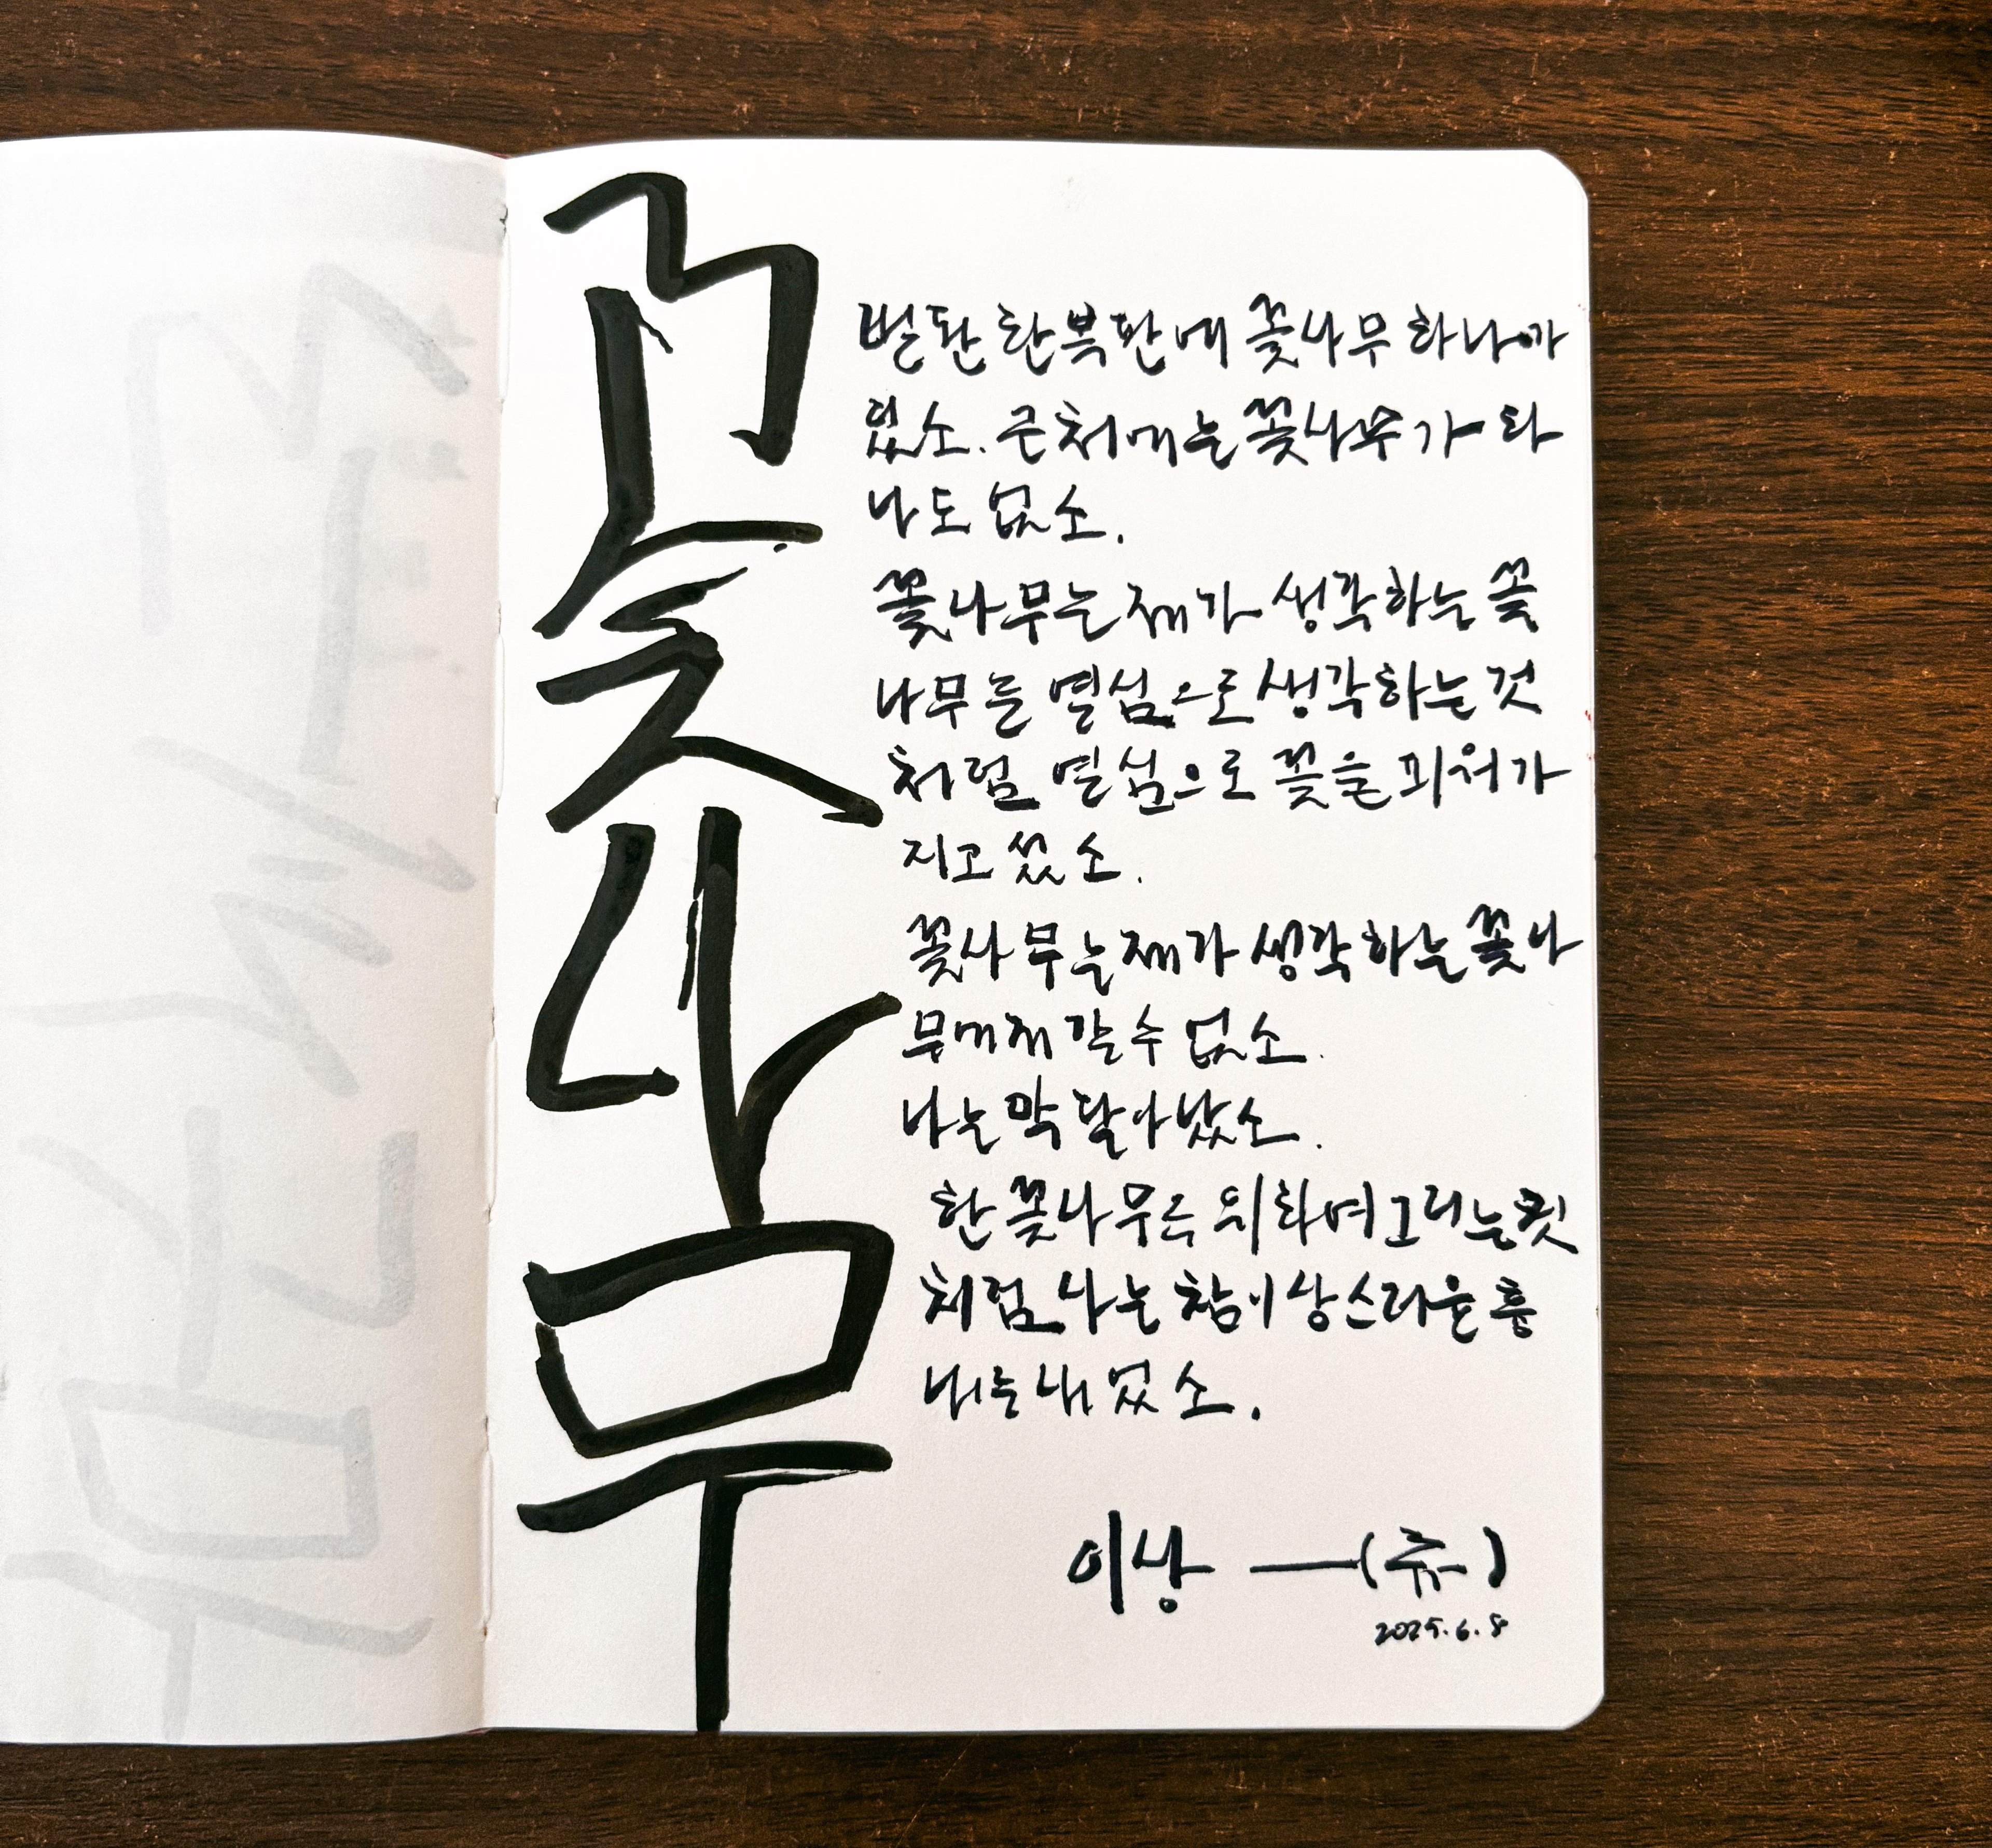 꽃나무
벌판 한복판에 꽃나무 하나가
있소. 근처에는 꽃나무가 하
나도 없소.
꽃나무는 제가 생각하는 꽃
나무를 열심으로 생각하는 것
처럼 열심으로 꽃을 피워가
지고 섰소.
꽃나무는 제가 생각하는 꽃나
무에게 갈 수 없소.
나는 막 달아났소.
한 꽃나무를 위하여 그러는 것
처럼 나는 참 이상스러운 흉
내는 내었소.
이상 —(쥬)
2025.6.8